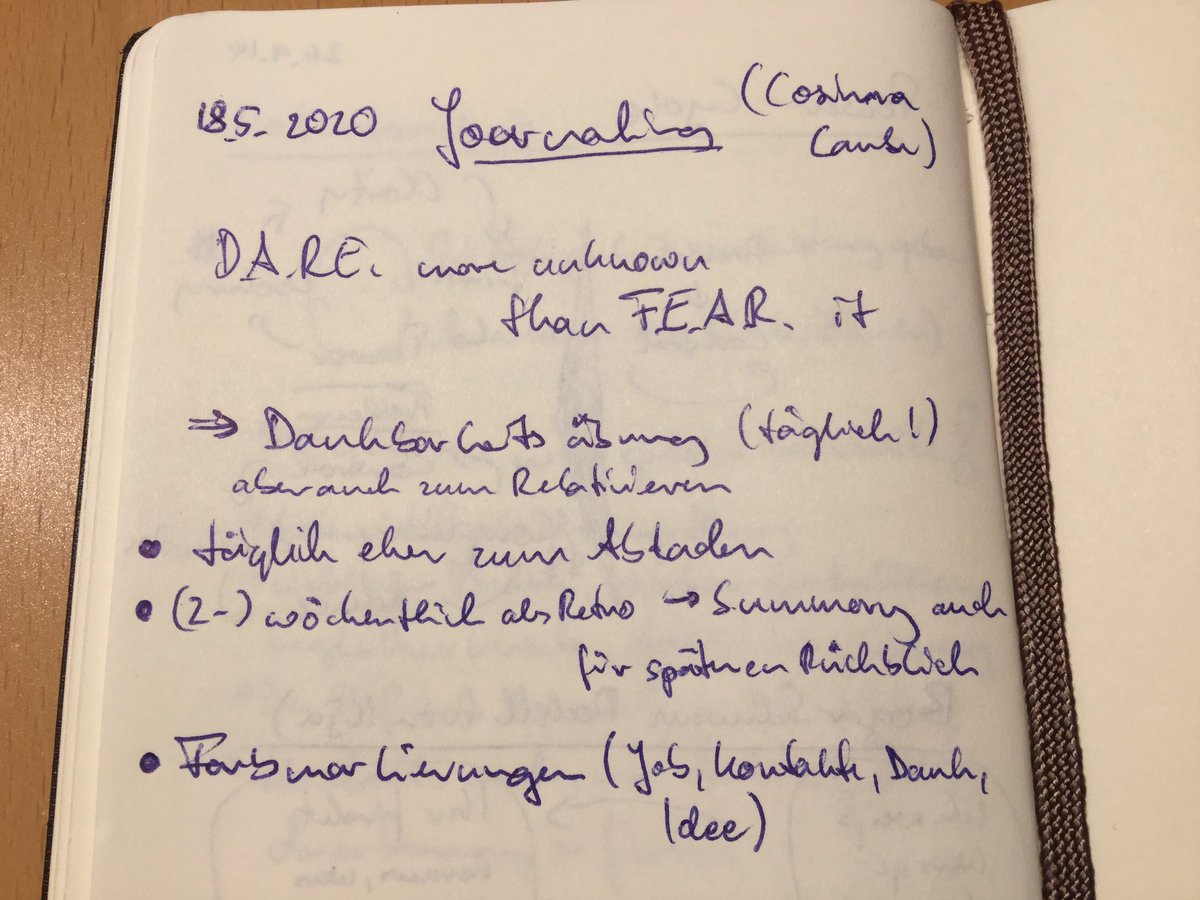 18.5. 2020 Journaling (Cosima
D.A.R.E. more unknown
than F.E.A.R. it
⇒ Dankbarkeitsübung (täglich!)
aber auch zum Relativieren
• täglich eher zum Abladen
• (2-) wöchentlich als Retro → Summary auch
für späteren Rückblick
• Farbmarkierungen (Job, Kontakte, Dank,
Idee)